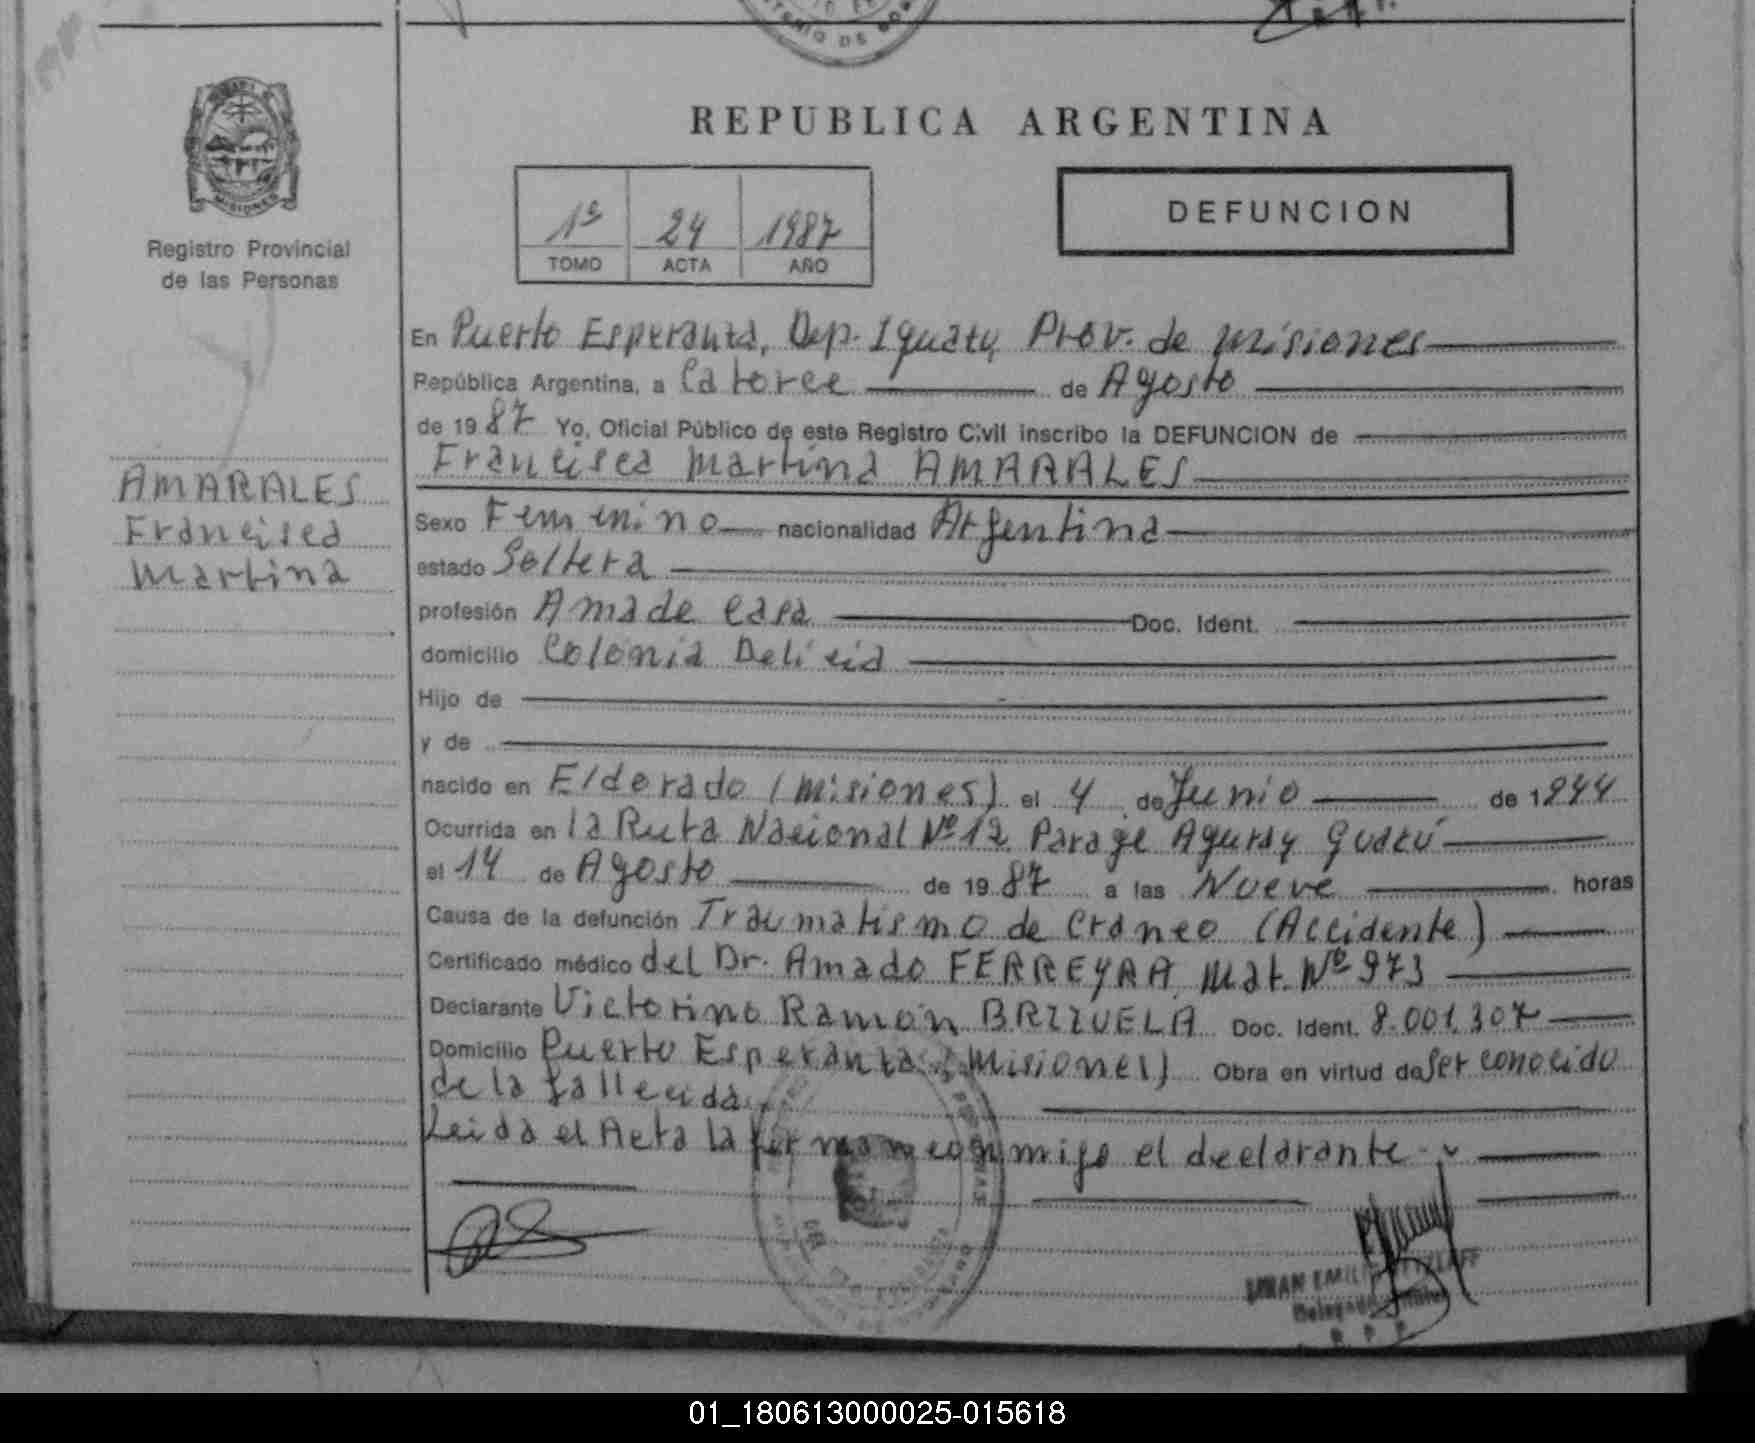 REPUBLICA ARGENTINA
MISIONES
Registro Provincial
de las Personas
1º 24 1987
TOMO ACTA AÑO
DEFUNCION
AMARALES
Francisca
Martina
En Puerto Esperanza, Dep. Iguazu, Prov. de Misiones
República Argentina, a Catorce de Agosto
de 1987 Yo, Oficial Público de este Registro Civil inscribo la DEFUNCION de
Francisca Martina AMARALES
Sexo Femenino nacionalidad Argentina
estado Soltera
profesión Ama de casa Doc. Ident.
domicilio Colonia Delicia
Hijo de
y de
nacido en Eldorado (Misiones) el 4 de Junio de 1944
Ocurrida en la Ruta Nacional Nº 12 Parage Aguray Guazú
el 14 de Agosto de 1987 a las Nueve horas
Causa de la defunción Traumatismo de Craneo (Accidente)
Certificado médico del Dr. Amado FERREYRA Mat. Nº 973
Declarante Victorino Ramón BRIZUELA Doc. Ident. 8.001.307
Domicilio Puerto Esperanza (Misiones) Obra en virtud de Ser conocido
de la fallecida
Leida el Acta la firman conmigo el declarante
01_180613000025-015618